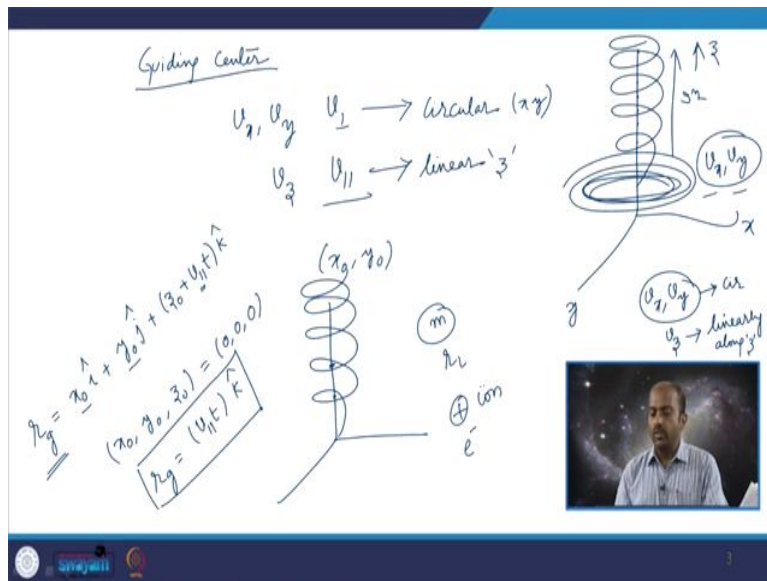 Guiding center
v_x, v_y v_⊥ → circular (xy)
v_z v_∥ → linear 'z'
z
v_x, v_y
x
y
v_x, v_y → cir
v_z → linearly along 'z'
(x_0, y_0)
m
r_L
⊕ ion
e^-
r_g = x_0 î + y_0 ĵ + (z_0 + v_∥t) k̂
(x_0, y_0, z_0) = (0,0,0)
r_g = (v_∥t) k̂
swayam
3